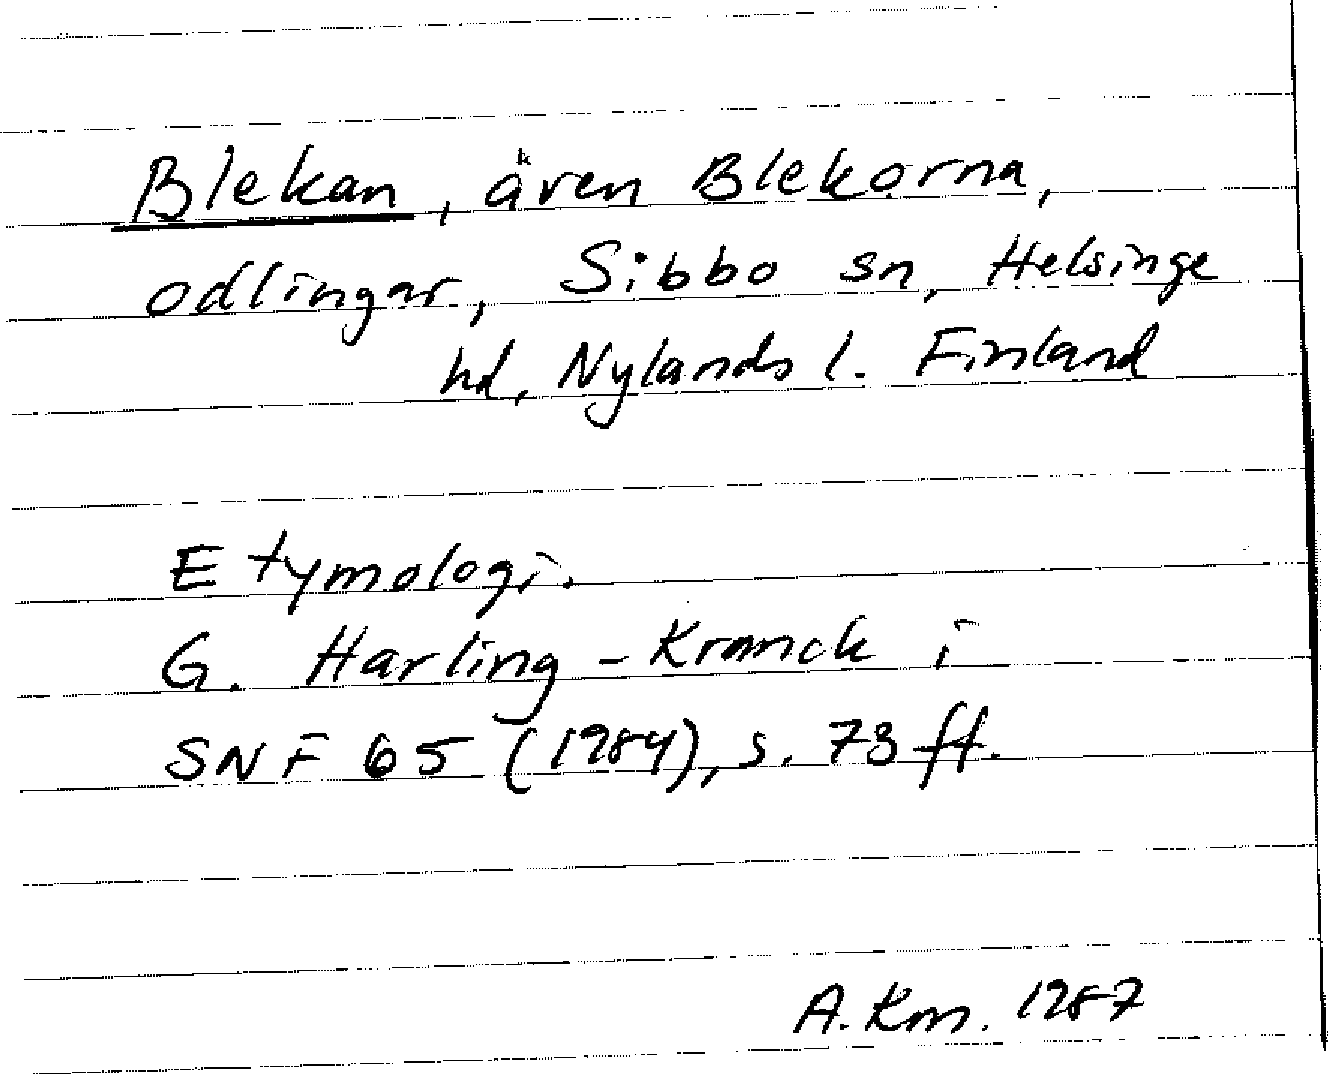 Blekan, även Blekorna,
odlingar, Sibbo sn, Helsinge
hd, Nylands l. Finland
Etymologi.
G. Harling-Kranck i
SNF 65 (1984), s. 73 ff.
A. Km. 1987